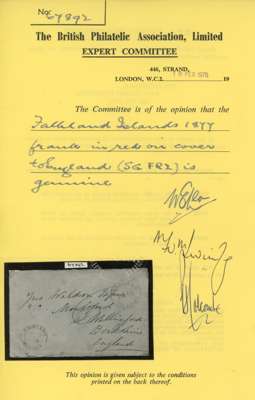 No. 67892
The British Philatelic Association, Limited
EXPERT COMMITTEE
446, STRAND,
LONDON, W.C.2. FEB 1970 19
The Committee is of the opinion that the
Falkland Islands 1877
frank in red on cover
to England (SG FR2) is
genuine
67892
Mrs Waldron
Wallingford
Berkshire
England
This opinion is given subject to the conditions
printed on the back thereof.